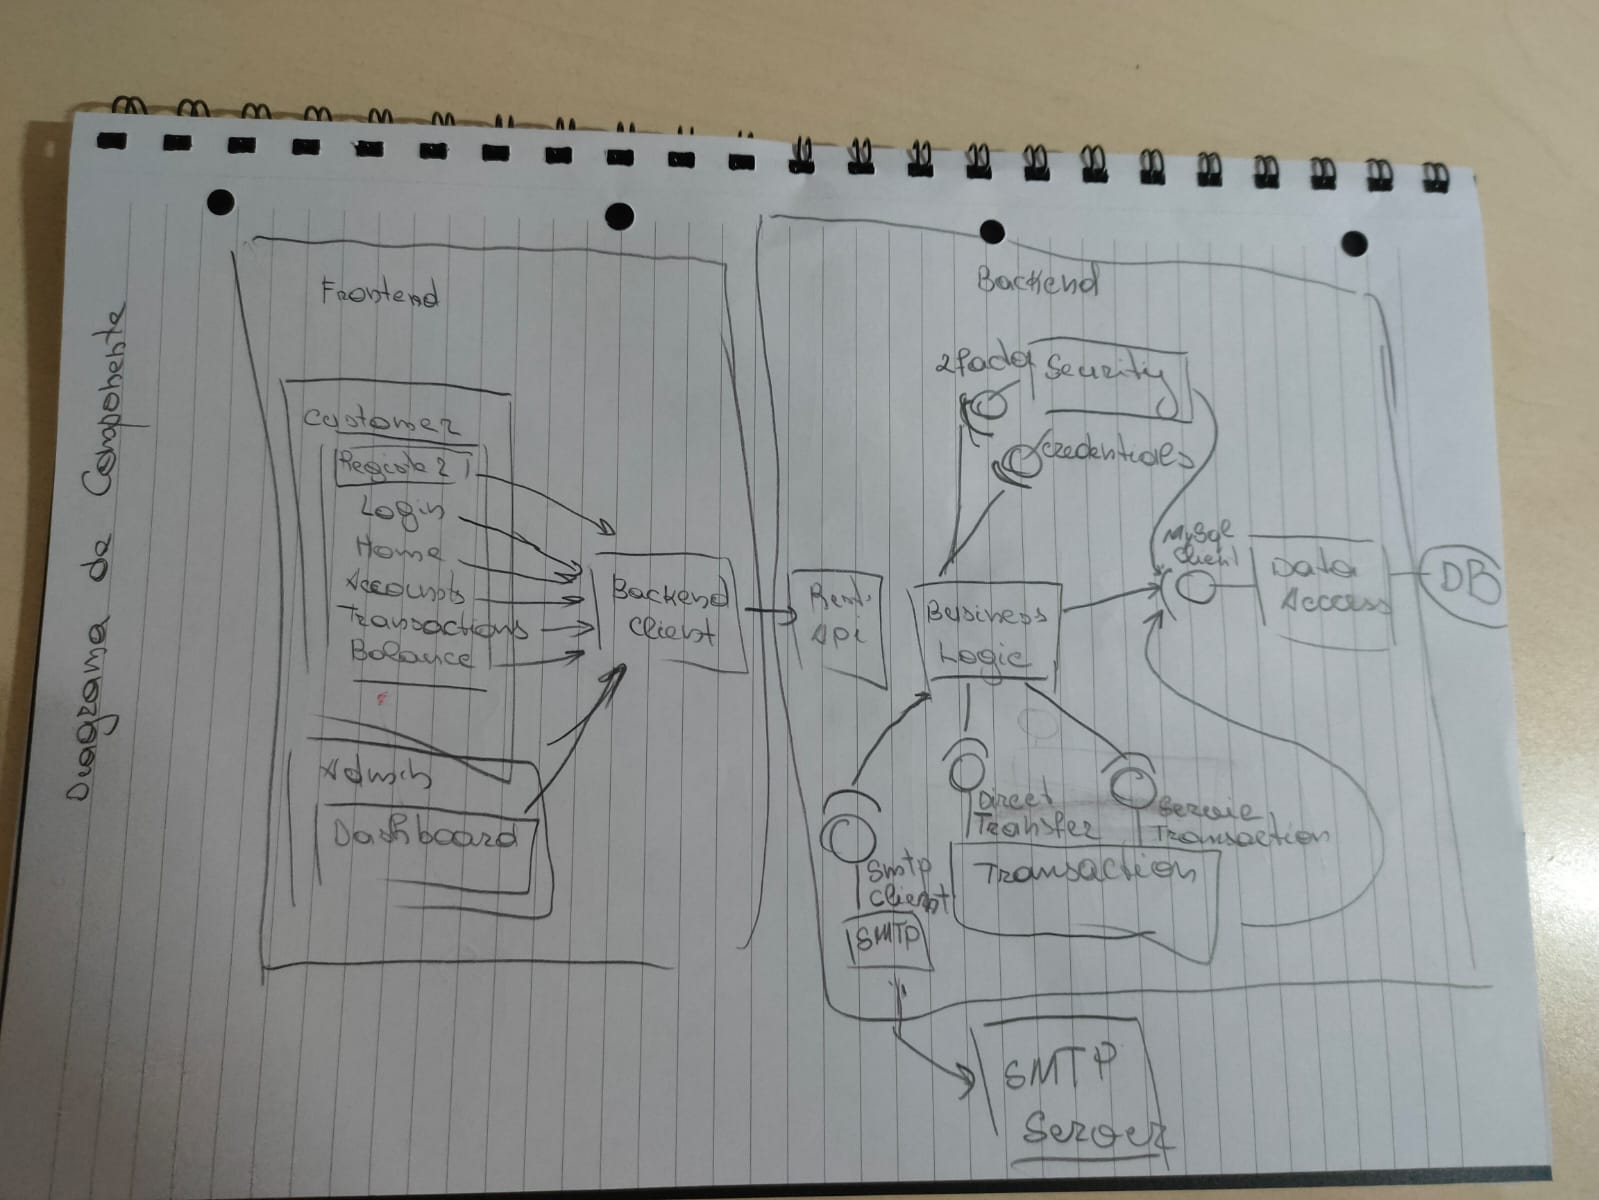 Diagrama de Componente
Frontend
Customer
Register
Login
Home
Accounts
Transactions
Balance
Admin
Dashboard
Backend
Client
Backend
Rest
Api
2factor
Security
Credentials
Business
Logic
MySql
Client
Data
Access
DB
Smtp
Client
SMTP
Direct
Transfer
Service
Transaction
Transaction
SMTP
Server